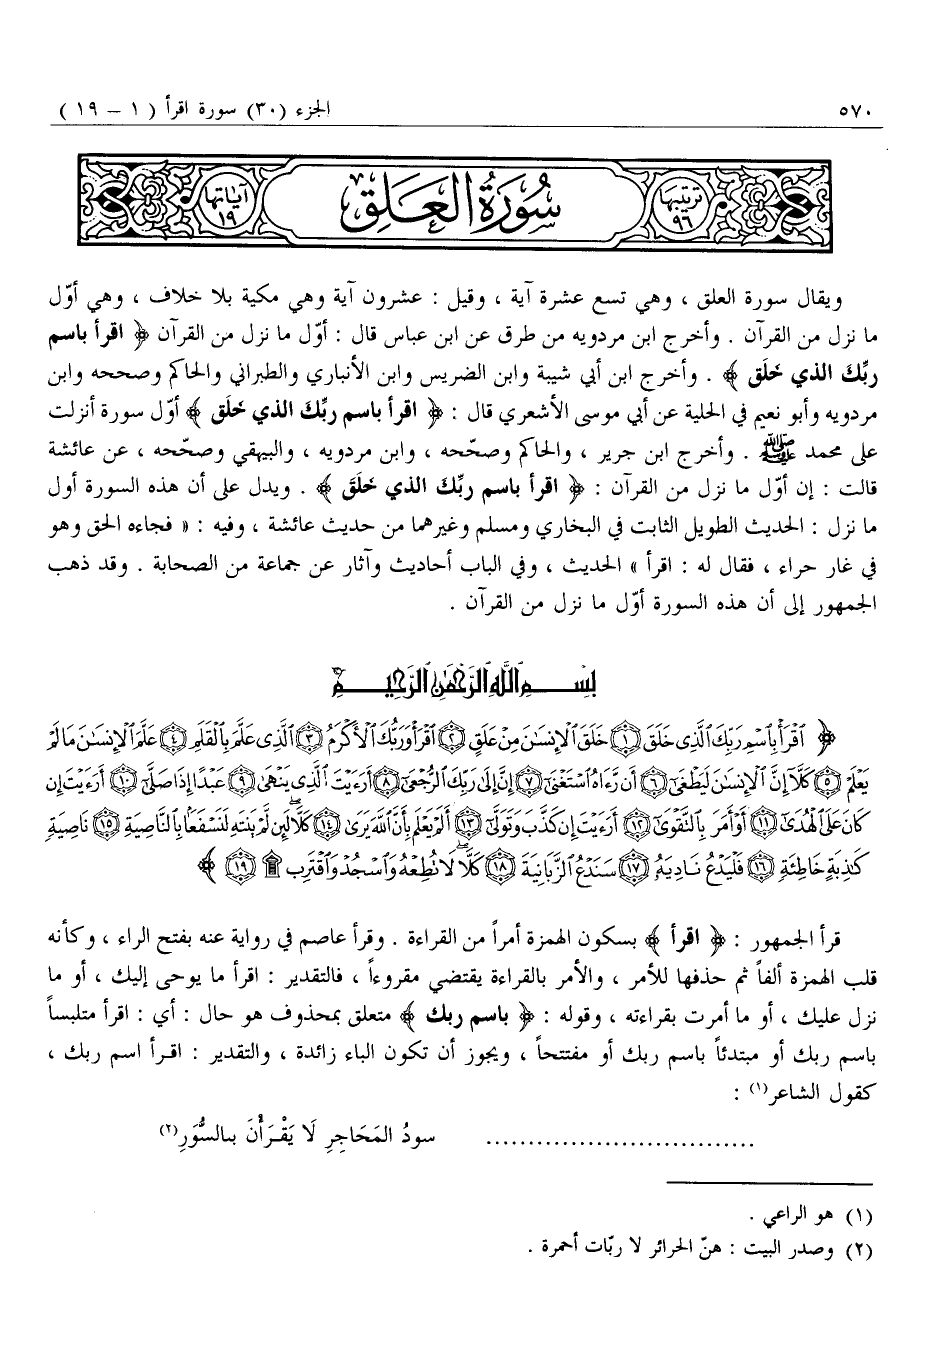 ٥٧٠ الجزء (٣٠) سورة اقرأ ( ١ – ١٩ )
ترتيبها ٩٦ سُورَةُ العَلَقِ آياتها ١٩
ويقال سورة العلق ، وهي تسع عشرة آية ، وقيل : عشرون آية وهي مكية بلا خلاف ، وهي أوّل
ما نزل من القرآن . وأخرج ابن مردويه من طرق عن ابن عباس قال : أوّل ما نزل من القرآن ﴿ اقرأ باسم
ربِّكَ الذي خلَق ﴾ . وأخرج ابن أبي شيبة وابن الضريس وابن الأنباري والطبراني والحاكم وصححه وابن
مردويه وأبو نعيم في الحلية عن أبي موسى الأشعري قال : ﴿ اقرأ باسم ربِّكَ الذي خَلَق ﴾ أوّل سورة أنزلت
على محمد ﷺ . وأخرج ابن جرير ، والحاكم وصحّحه ، وابن مردويه ، والبيهقي وصحّحه ، عن عائشة
قالت : إن أوّل ما نزل من القرآن : ﴿ اقرأ باسم ربِّكَ الذي خَلَقَ ﴾ . ويدل على أن هذه السورة أول
ما نزل : الحديث الطويل الثابت في البخاري ومسلم وغيرهما من حديث عائشة ، وفيه : « فجاءه الحق وهو
في غار حراء ، فقال له : اقرأ » الحديث ، وفي الباب أحاديث وآثار عن جماعة من الصحابة . وقد ذهب
الجمهور إلى أن هذه السورة أوّل ما نزل من القرآن .
بِسْمِ ٱللَّهِ ٱلرَّحْمَٰنِ ٱلرَّحِيمِ
﴿ ٱقْرَأْ بِٱسْمِ رَبِّكَ ٱلَّذِى خَلَقَ ١ خَلَقَ ٱلْإِنسَٰنَ مِنْ عَلَقٍ ٢ ٱقْرَأْ وَرَبُّكَ ٱلْأَكْرَمُ ٣ ٱلَّذِى عَلَّمَ بِٱلْقَلَمِ ٤ عَلَّمَ ٱلْإِنسَٰنَ مَا لَمْ
يَعْلَمْ ٥ كَلَّآ إِنَّ ٱلْإِنسَٰنَ لَيَطْغَىٰٓ ٦ أَن رَّءَاهُ ٱسْتَغْنَىٰٓ ٧ إِنَّ إِلَىٰ رَبِّكَ ٱلرُّجْعَىٰٓ ٨ أَرَءَيْتَ ٱلَّذِى يَنْهَىٰ ٩ عَبْدًا إِذَا صَلَّىٰٓ ١٠ أَرَءَيْتَ إِن
كَانَ عَلَى ٱلْهُدَىٰٓ ١١ أَوْ أَمَرَ بِٱلتَّقْوَىٰٓ ١٢ أَرَءَيْتَ إِن كَذَّبَ وَتَوَلَّىٰٓ ١٣ أَلَمْ يَعْلَم بِأَنَّ ٱللَّهَ يَرَىٰ ١٤ كَلَّا لَئِن لَّمْ يَنتَهِ لَنَسْفَعًۢا بِٱلنَّاصِيَةِ ١٥ نَاصِيَةٍ
كَٰذِبَةٍ خَاطِئَةٍ ١٦ فَلْيَدْعُ نَادِيَهُۥ ١٧ سَنَدْعُ ٱلزَّبَانِيَةَ ١٨ كَلَّا لَا تُطِعْهُ وَٱسْجُدْ وَٱقْتَرِب ۩ ١٩ ﴾
قرأ الجمهور : ﴿ اقرأ ﴾ بسكون الهمزة أمراً من القراءة . وقرأ عاصم في رواية عنه بفتح الراء ، وكأنه
قلب الهمزة ألفاً ثم حذفها للأمر ، والأمر بالقراءة يقتضي مقروءاً ، فالتقدير : اقرأ ما يوحى إليك ، أو ما
نزل عليك ، أو ما أمرت بقراءته ، وقوله : ﴿ باسم ربك ﴾ متعلق بمحذوف هو حال : أي : اقرأ متلبساً
باسم ربك أو مبتدئاً باسم ربك أو مفتتحاً ، ويجوز أن تكون الباء زائدة ، والتقدير : اقرأ اسم ربك ،
كقول الشاعر(١) :
................................ سودُ المَحَاجِرِ لَا يَقْرَأْنَ بالسُّوَرِ(٢)
(١) هو الراعي .
(٢) وصدر البيت : هنّ الحرائر لا ربّات أحمرة .